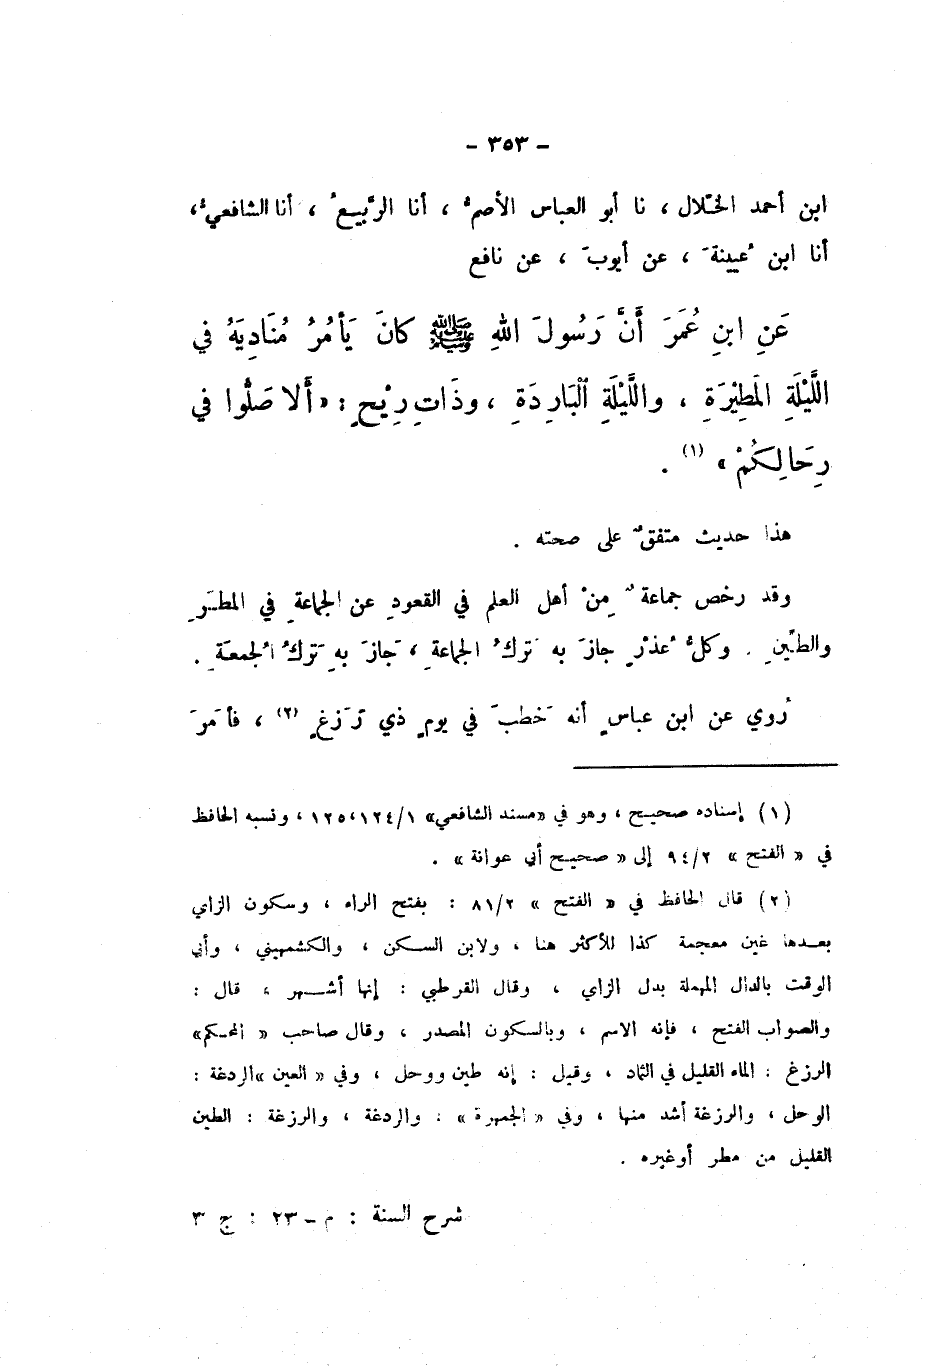 - ٣٥٣ -
ابن أحمد الخلّال ، نا أبو العباس الأصمُّ ، أنا الرَّبيعُ ، أنا الشافعيُّ ،
أنا ابن عُيينةَ ، عن أيوبَ ، عن نافع
عَنِ ابنِ عُمَرَ أَنَّ رَسُولَ اللهِ ﷺ كانَ يَأمُرُ مُنَادِيَهُ في
اللَّيْلَةِ المَطِيْرَةِ ، واللَّيْلَةِ البَارِدَةِ ، وذَاتِ رِيْحٍ : « أَلا صَلُّوا في
رِحَالِكُمْ » (١) .
هذا حديث متفقٌ على صحته .
وقد رخص جماعةٌ مِنْ أهل العلم في القعودِ عن الجماعةِ في المطَرِ
والطِّينِ . وكلُّ عُذْرٍ جازَ به تَركُ الجماعةِ ، جازَ بهِ تَركُ الجُمعَةِ .
رُوي عن ابن عباسٍ أنه خَطبَ في يومٍ ذي رَزغٍ (٢) ، فأَمَرَ
(١) إسناده صحيح ، وهو في «مسند الشافعي» ١/١٢٤،١٢٥ ، ونسبه الحافظ
في « الفتح » ٢/٩٤ إلى « صحيح أبي عوانة » .
(٢) قال الحافظ في « الفتح » ٢/٨١ : بفتح الراء ، وسكون الزاي
بعدها غين معجمة كذا للأكثر هنا ، ولابن السكن ، والكشميهني ، وأبي
الوقت بالدال المهملة بدل الزاي ، وقال القرطبي : إنها أشهر ، قال :
والصواب الفتح ، فإنه الاسم ، وبالسكون المصدر ، وقال صاحب « المحكم»
الرزغ : الماء القليل في الثماد ، وقيل : إنه طين ووحل ، وفي « العين »الردغة :
الوحل ، والرزغة أشد منها ، وفي « الجمهرة » : والردغة ، والرزغة : الطين
القليل من مطر أوغيره .
شرح السنة : م – ٢٣ : ج ٣